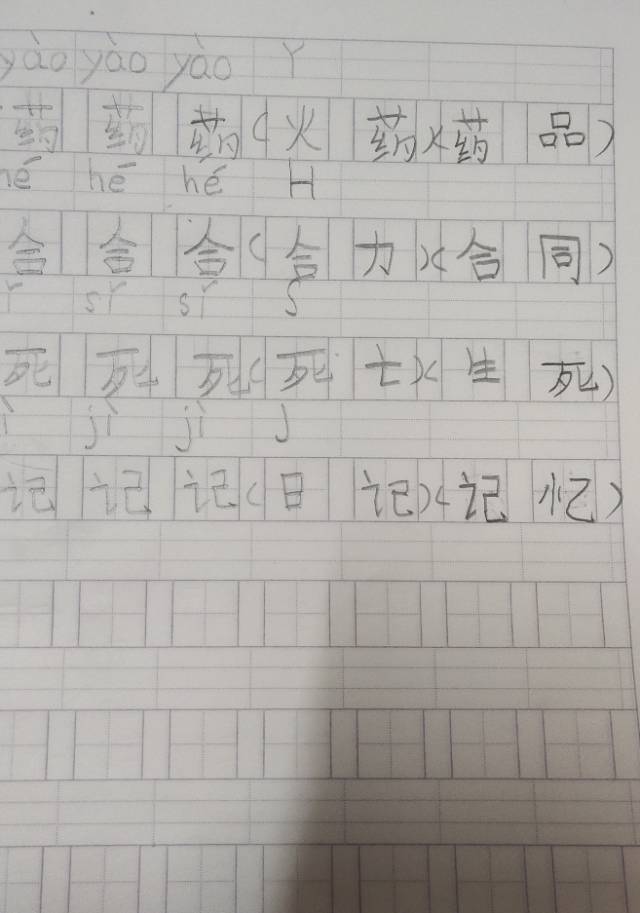 yào yào yào Y
药 药 药（火 药）（药 品）
hé hé hé H
合 合 合（合 力）（合 同）
sǐ sǐ S
死 死 死（死 亡）（生 死）
jì jì J
记 记 记（日 记）（记 忆）